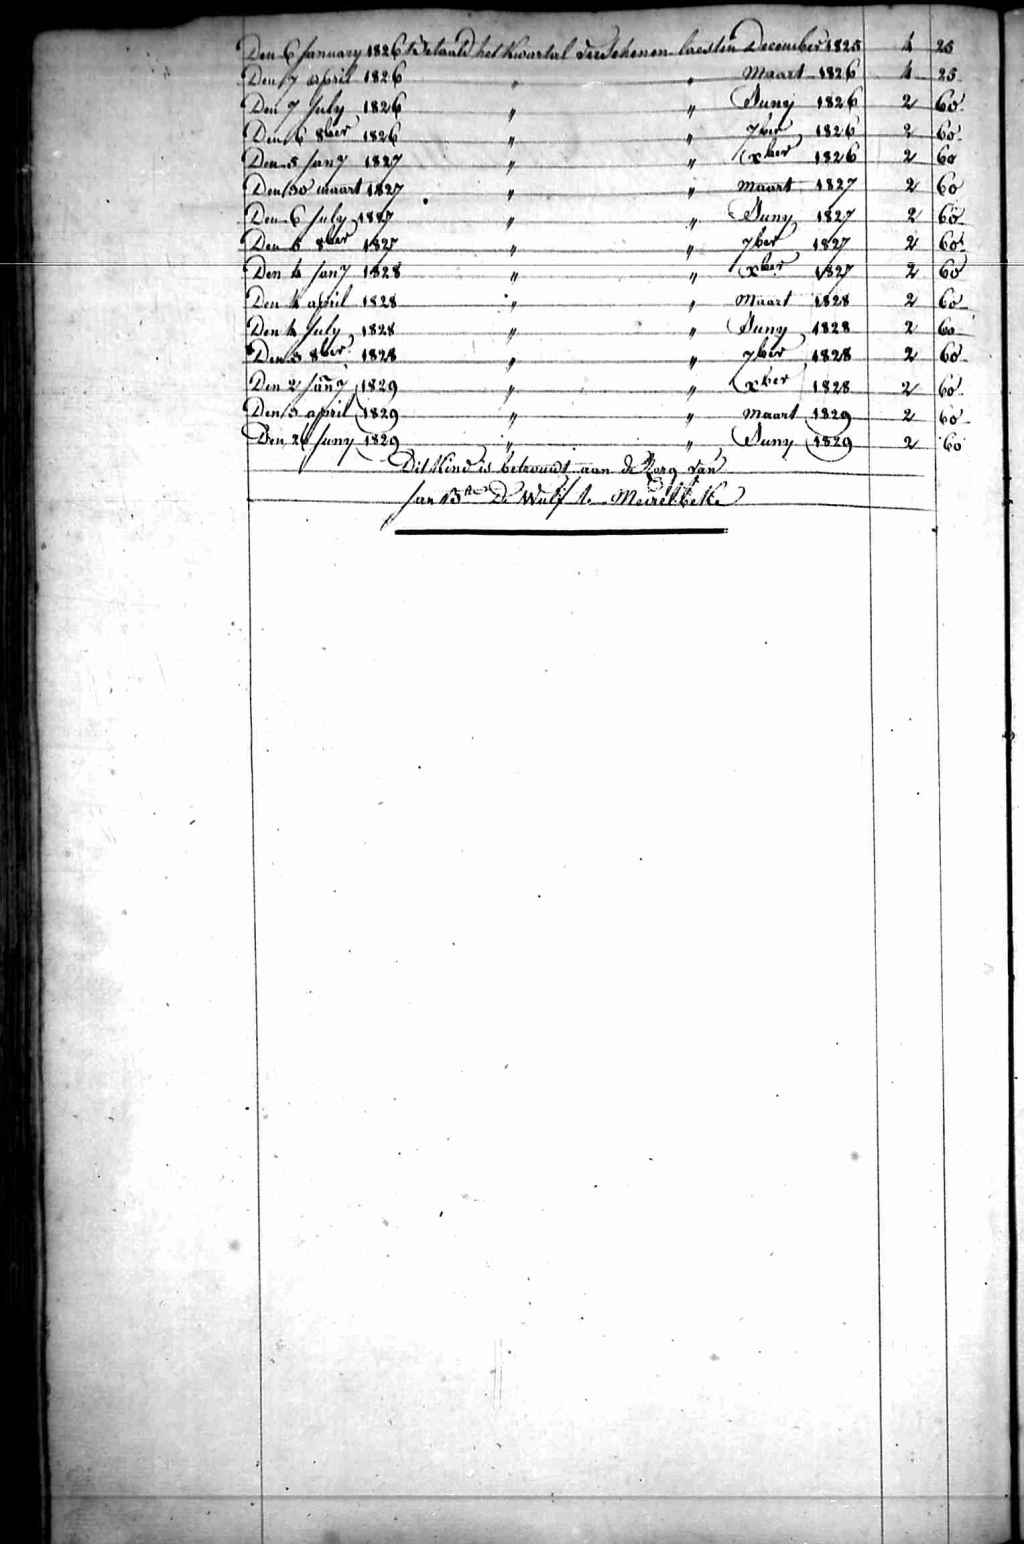 Den 6 January 1826 betaald het Kwartal verschenen laesten December 1825 4 25
Den 7 april 1826 " " Maart 1826 4 25
Den 7 July 1826 " " Juny 1826 2 60
Den 6 8ber 1826 " " 7ber 1826 2 60
Den 5 Jany 1827 " " xber 1826 2 60
Den 30 maart 1827 " " Maart 1827 2 60
Den 6 July 1827 " " Juny 1827 2 60
Den 5 8ber 1827 " " 7ber 1827 2 60
Den 4 Jany 1828 " " xber 1827 2 60
Den 4 april 1828 " " Maart 1828 2 60
Den 4 July 1828 " " Juny 1828 2 60
Den 3 8ber 1828 " " 7ber 1828 2 60
Den 2 Jany 1829 " " xber 1828 2 60
Den 3 april 1829 " " Maart 1829 2 60
Den 26 Juny 1829 " " Juny 1829 2 60
Dit Kind is betrouwt aan de Zorg van
Jan De Wulf te Meirelbeke